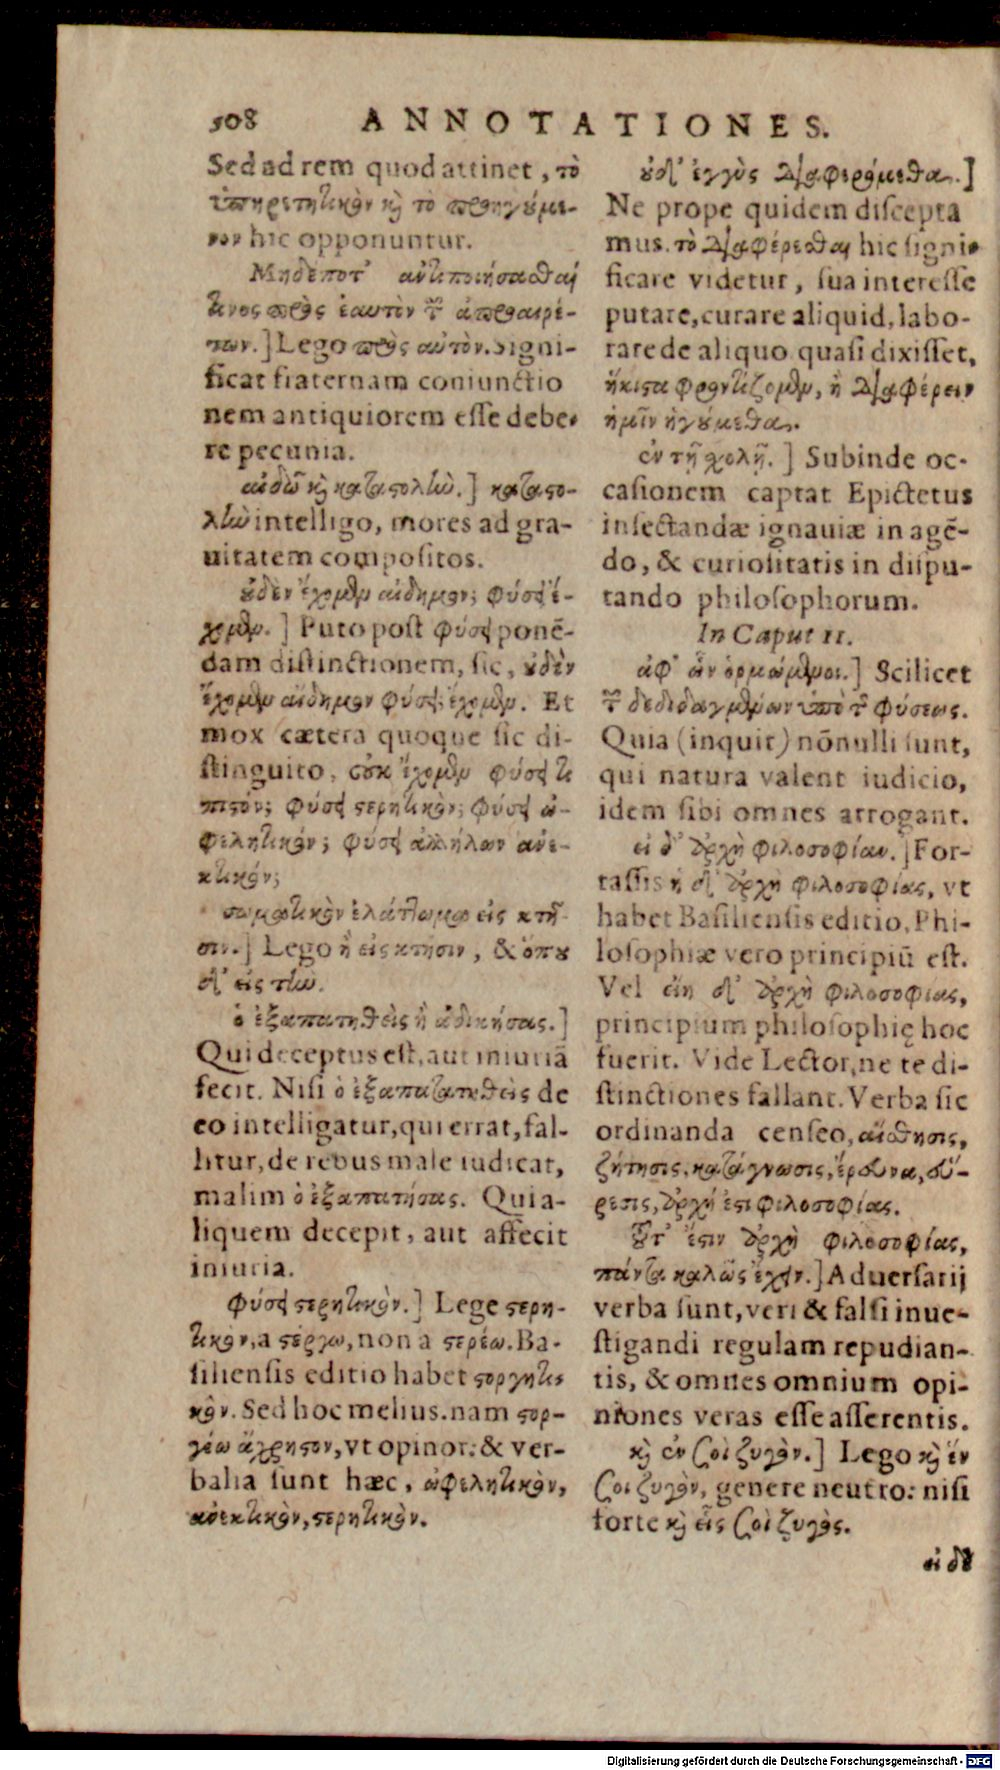 508 ANNOTATIONES.
Sed ad rem quod attinet, τὸ
ὑπηρετητικὸν καὶ τὸ προηγούμε-
νον hic opponuntur.
Μηδέποτ' ἀντιποιήσασθαί
τινος πρὸς ἑαυτὸν τ ἀπροαιρέ-
των.] Lego πρὸς αὐτὸν. Signi-
ficat fraternam coniunctio
nem antiquiorem esse debe-
re pecunia.
αἰδῶ καὶ καταστολὴν.] καταστο-
λὴν intelligo, mores ad gra-
uitatem compositos.
οὐδὲν ἔχομεν αἰδημον; φύσει ἔ-
χομεν.] Puto post φύσει ponẽ-
dam distinctionem, sic, οὐδὲν
ἔχομεν αἴδημον φύσει; ἔχομεν. Et
mox cætera quoque sic di-
stinguito, οὐκ ἔχομεν φύσει τι
πιστόν; φύσει στερητικὸν; φύσει ὠ-
φελητικόν; φύσει ἀλλήλων ἀνε-
κτικόν;
σωματικὸν ἐλάττωμα εἰς κτῆ-
σιν.] Lego ἢ εἰς κτῆσιν, & ὅπου
δ' εἰς τὴν.
ὁ ἐξαπατηθεὶς ἢ ἀδικήσας.]
Qui deceptus est, aut iniuriã
fecit. Nisi ὁ ἐξαπατατηθεὶς de
eo intelligatur, qui errat, fal-
litur, de rebus male iudicat,
malim ὁ ἐξαπατήσας. Qui a-
liquem decepit, aut affecit
iniuria.
Φύσει στερητικὸν.] Lege στερη-
τικὸν, a στέργω, non a στερέω. Ba-
siliensis editio habet στοργητι-
κὸν. Sed hoc melius. nam στορ-
γέω ἄχρηστον, vt opinor: & ver-
balia sunt hæc, ὠφελητικὸν,
ἀνεκτικὸν, στερητικὸν.
οὐδ' ἐγγὺς διαφερόμεθα.]
Ne prope quidem discepta
mus. τὸ διαφέρεσθαι hic signi-
ficare videtur, sua interesse
putare, curare aliquid, labo-
rare de aliquo quasi dixisset,
ἥκιστα φροντίζομεν, ἢ διαφέρειν
ἡμῖν ἡγούμεθα.
ἐν τῇ χολῇ.] Subinde oc-
casionem captat Epictetus
insectandæ ignauiæ in agẽ-
do, & curiositatis in dispu-
tando philosophorum.
In Caput 11.
ἀφ' ὧν ὁρμώμενοι.] Scilicet
τ δεδιδαγμένων ὑπὸ τ φύσεως.
Quia (inquit) nõnulli sunt,
qui natura valent iudicio,
idem sibi omnes arrogant.
εἰ δ' ἀρχὴ φιλοσοφίαν.] For-
tassis ἡ δ' ἀρχὴ φιλοσοφίας, vt
habet Basiliensis editio, Phi-
losophiæ vero principiũ est.
Vel εἴη δ' ἀρχὴ φιλοσοφίας,
principium philosophię hoc
fuerit. Vide Lector, ne te di-
stinctiones fallant. Verba sic
ordinanda censeo, αἴσθησις,
ζήτησις, κατάγνωσις, ἔρευνα, εὕ-
ρεσις, ἀρχή ἐστι φιλοσοφίας.
Τοῦτ' ἔστιν ἀρχὴ φιλοσοφίας,
πάντα καλῶς ἔχειν.] Aduersarij
verba sunt, veri & falsi inue-
stigandi regulam repudian-
tis, & omnes omnium opi-
niones veras esse asserentis.
καὶ ἐν σοὶ ζυγὸν.] Lego καὶ ἕν
σοι ζυγὸν, genere neutro: nisi
forte καὶ εἷς σοὶ ζυγὸς.
εἰ δὲ